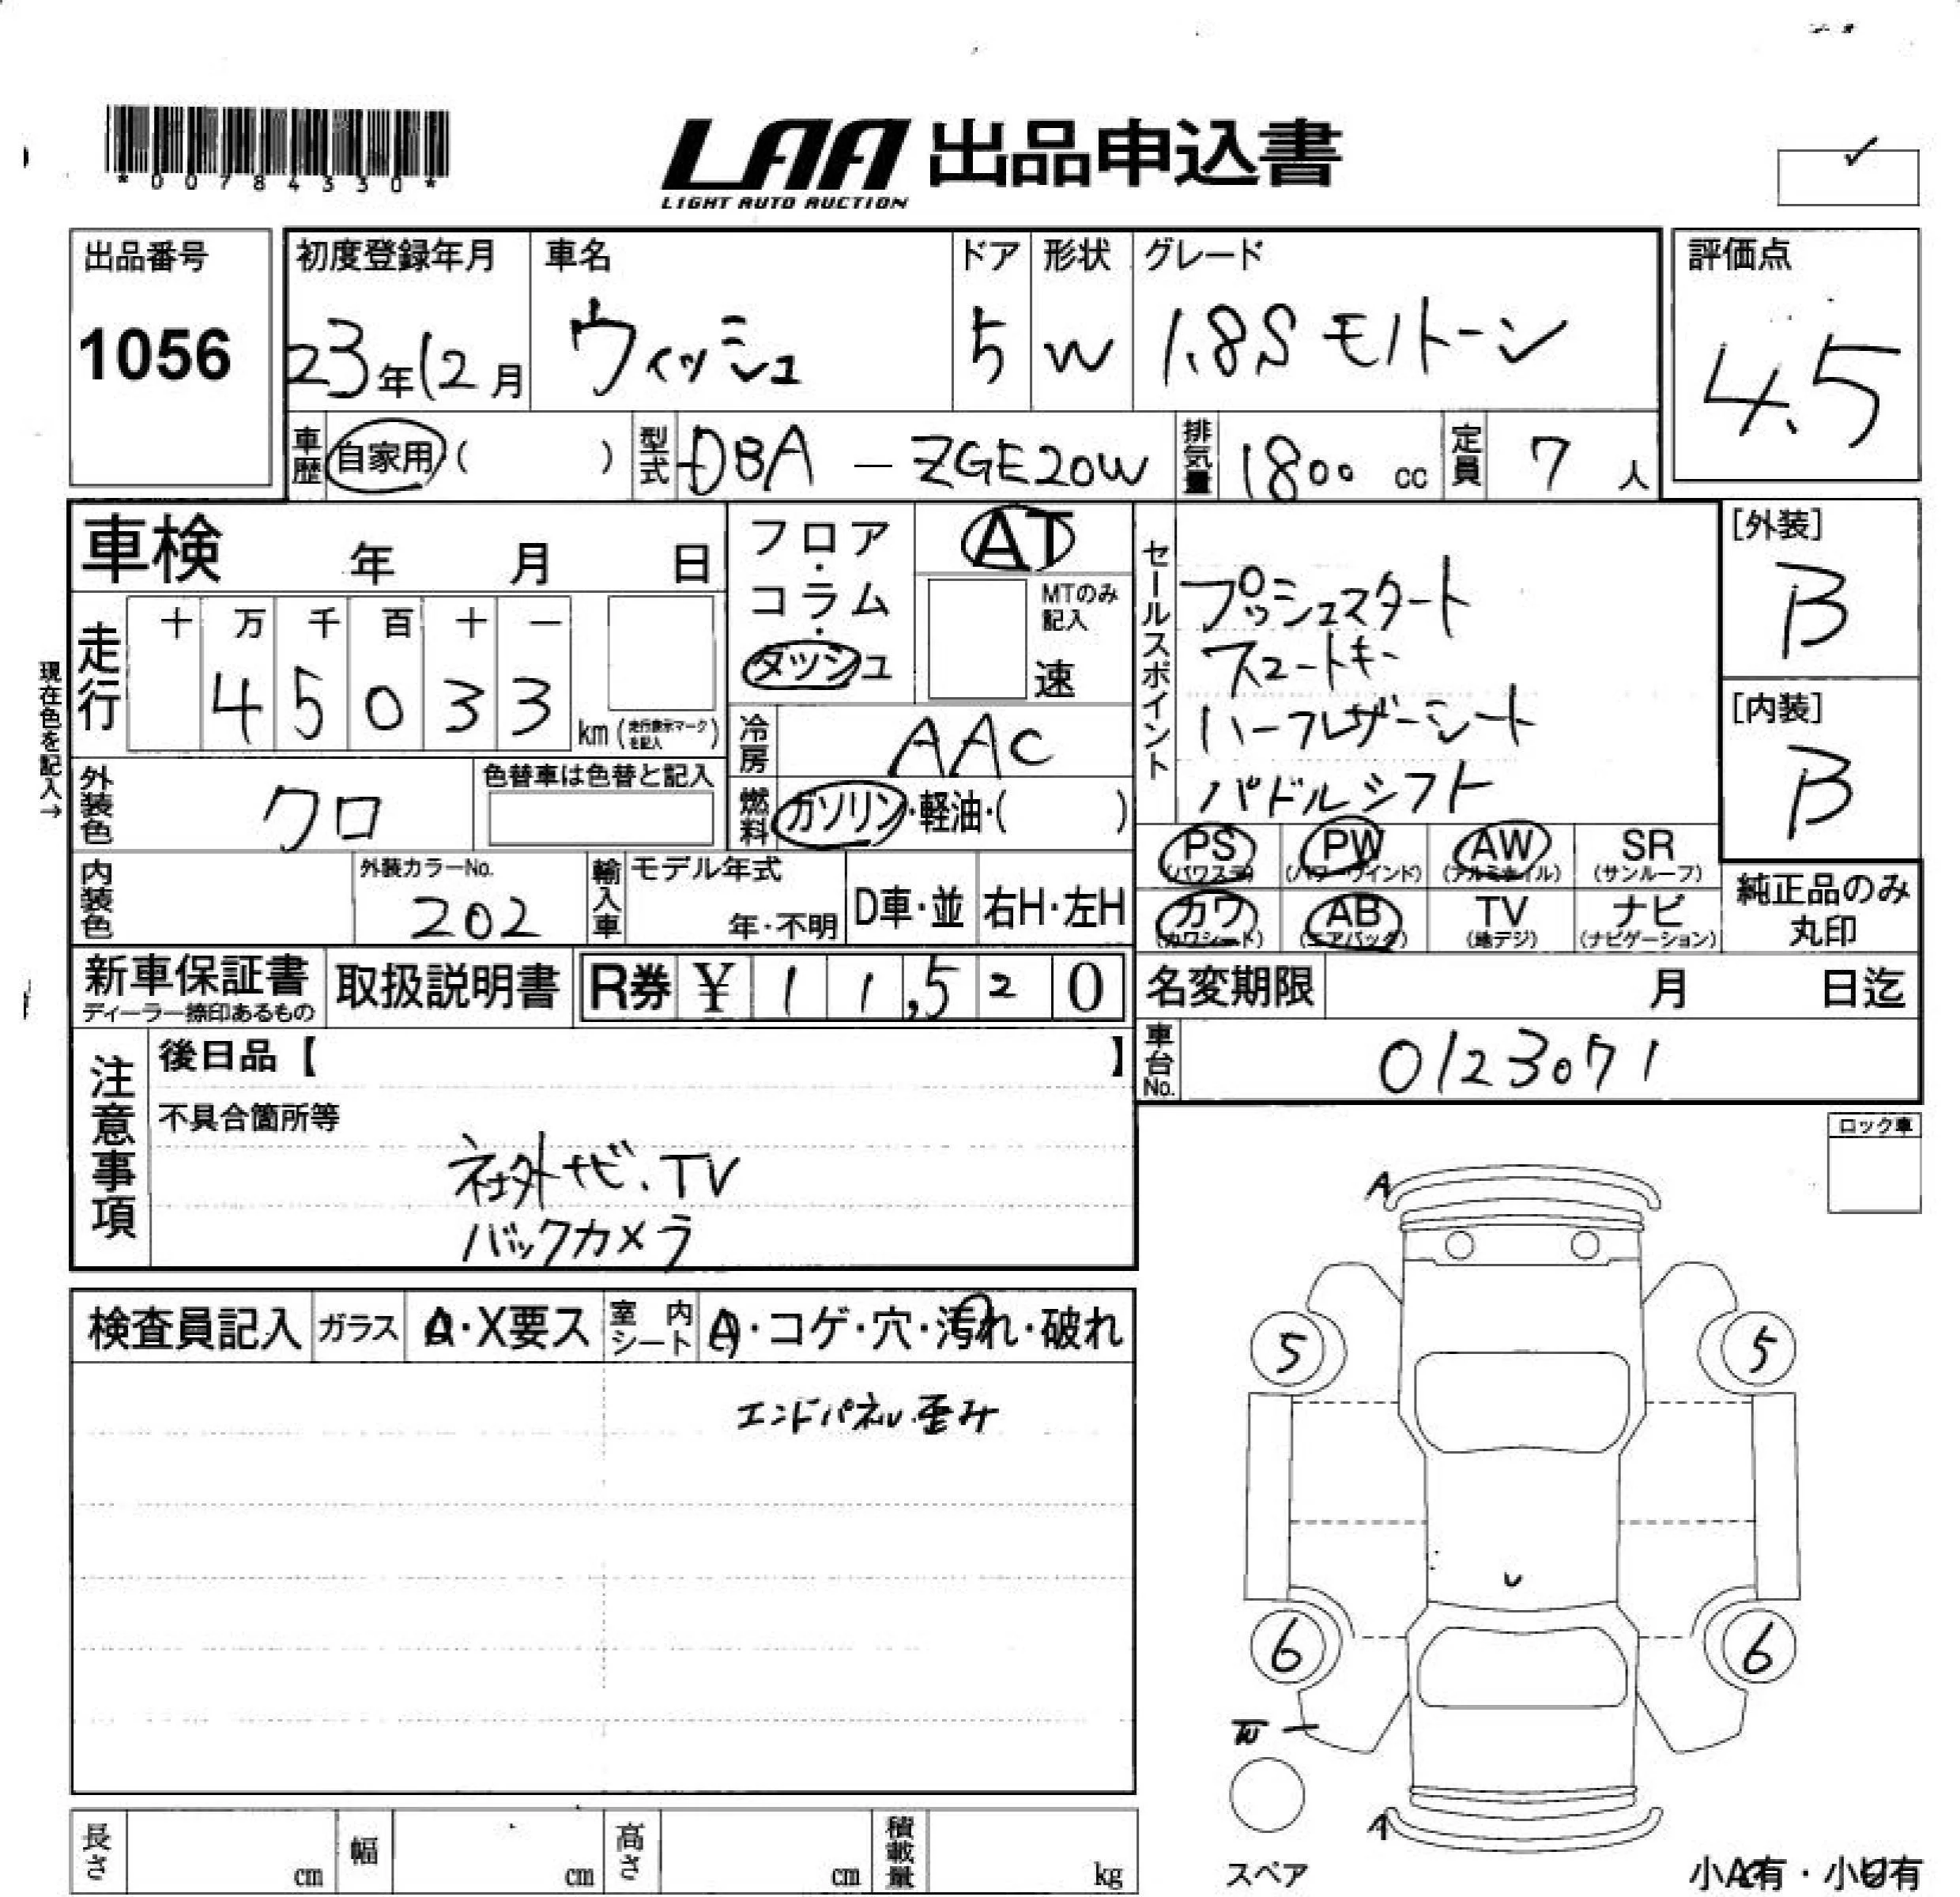 *00784330*
LAA 出品申込書
LIGHT AUTO AUCTION
出品番号
1056
初度登録年月
23年12月
車名
ウィッシュ
ドア
5
形状
W
グレード
1.8S モノトーン
評価点
4.5
車歴
自家用( )
型式
DBA - ZGE20W
排気量
1800 cc
定員
7 人
車検 年 月 日
フロア・コラム・ダッシュ
AT
MTのみ記入
速
セールスポイント
プッシュスタート
スマートキー
ハーフレザーシート
パドルシフト
[外装]
B
[内装]
B
現在色を記入→
走行
十 万 千 百 十 一
4 5 0 3 3
km (走行表示マークを記入)
冷房
AAC
外装色
クロ
色替車は色替と記入
燃料
ガソリン・軽油・( )
PS (パワステ)
PW (パワーウインド)
AW (アルミホイル)
SR (サンルーフ)
カワ (カワシート)
AB (エアバッグ)
TV (地デジ)
ナビ (ナビゲーション)
純正品のみ丸印
内装色
外装カラーNo.
202
輸入車
モデル年式
年・不明
D車・並
右H・左H
新車保証書
ディーラー捺印あるもの
取扱説明書
R券 ¥ 1 1,5 2 0
名変期限 月 日迄
車台No.
0123071
注意事項
後日品【 】
不具合箇所等
社外ナビ、TV
バックカメラ
ロック車
検査員記入
ガラス
A・X要ス
室内シート
A・コゲ・穴・汚れ・破れ
エンドパネル歪み
A
5
5
U
6
6
W
A
スペア
小A有・小U有
長さ cm
幅 cm
高さ cm
積載量 kg